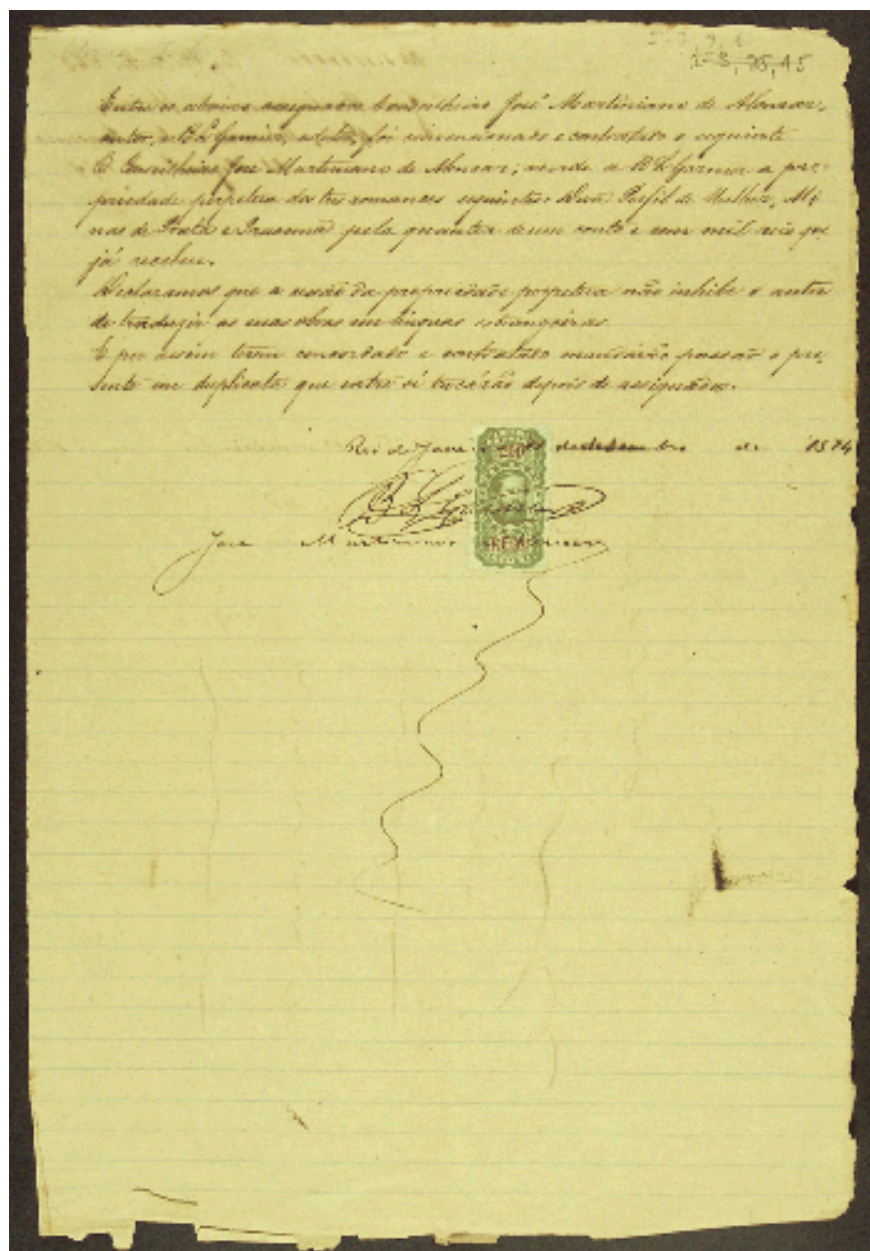 1-3, 35, 45
Entre os abaixo assignados Conselheiro José Martiniano de Alencar,
autor, e B. L. Garnier, editor, foi convencionado e contratado o seguinte
O Conselheiro José Martiniano de Alencar; vende a B L Garnier a pro-
priedade perpetua dos tres romances seguintes: Diva Perfil de Mulher, Mi
nas de Prata e Iracema pela quantia de um conto e cem mil reis q
já recebeu.
Declaramos que a cessão da propriedade perpetua não inhibe o autor
de traduzir as suas obras em linguas estrangeiras
E por assim terem concordado e contratado mandárão passar o pre-
sente em duplicata que entre si trocárão depois de assignados.
Rio de Janeiro de de 1874
B L Garnier
José Martiniano de Alencar
200
REIS